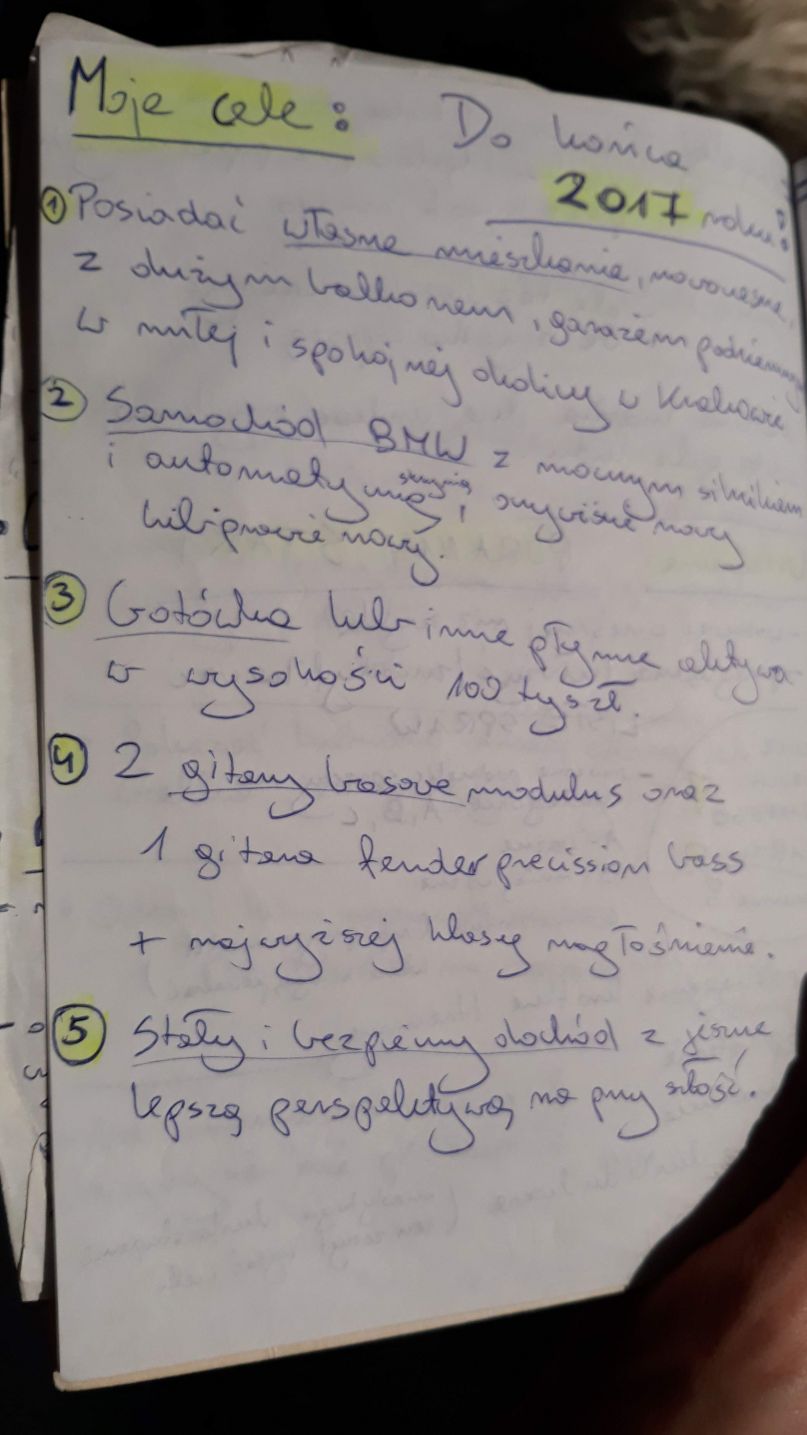 Moje cele: Do końca
2017 roku:
1 Posiadać własne mieszkanie, nowoczesne,
z dużym balkonem, garażem podziemnym
w miłej i spokojnej okolicy w Krakowie
2 Samochód BMW z mocnym silnikiem
i automatyczną skrzynią, oczywiście nowy
lub prawie nowy.
3 Gotówka lub inne płynne aktywa
w wysokości 100 tys zł.
4 2 gitary basowe modulus oraz
1 gitara fender precission bass
+ najwyższej klasy nagłośnienie.
5 Stały i bezpieczny dochód z jeszcze
lepszą perspektywą na przyszłość.